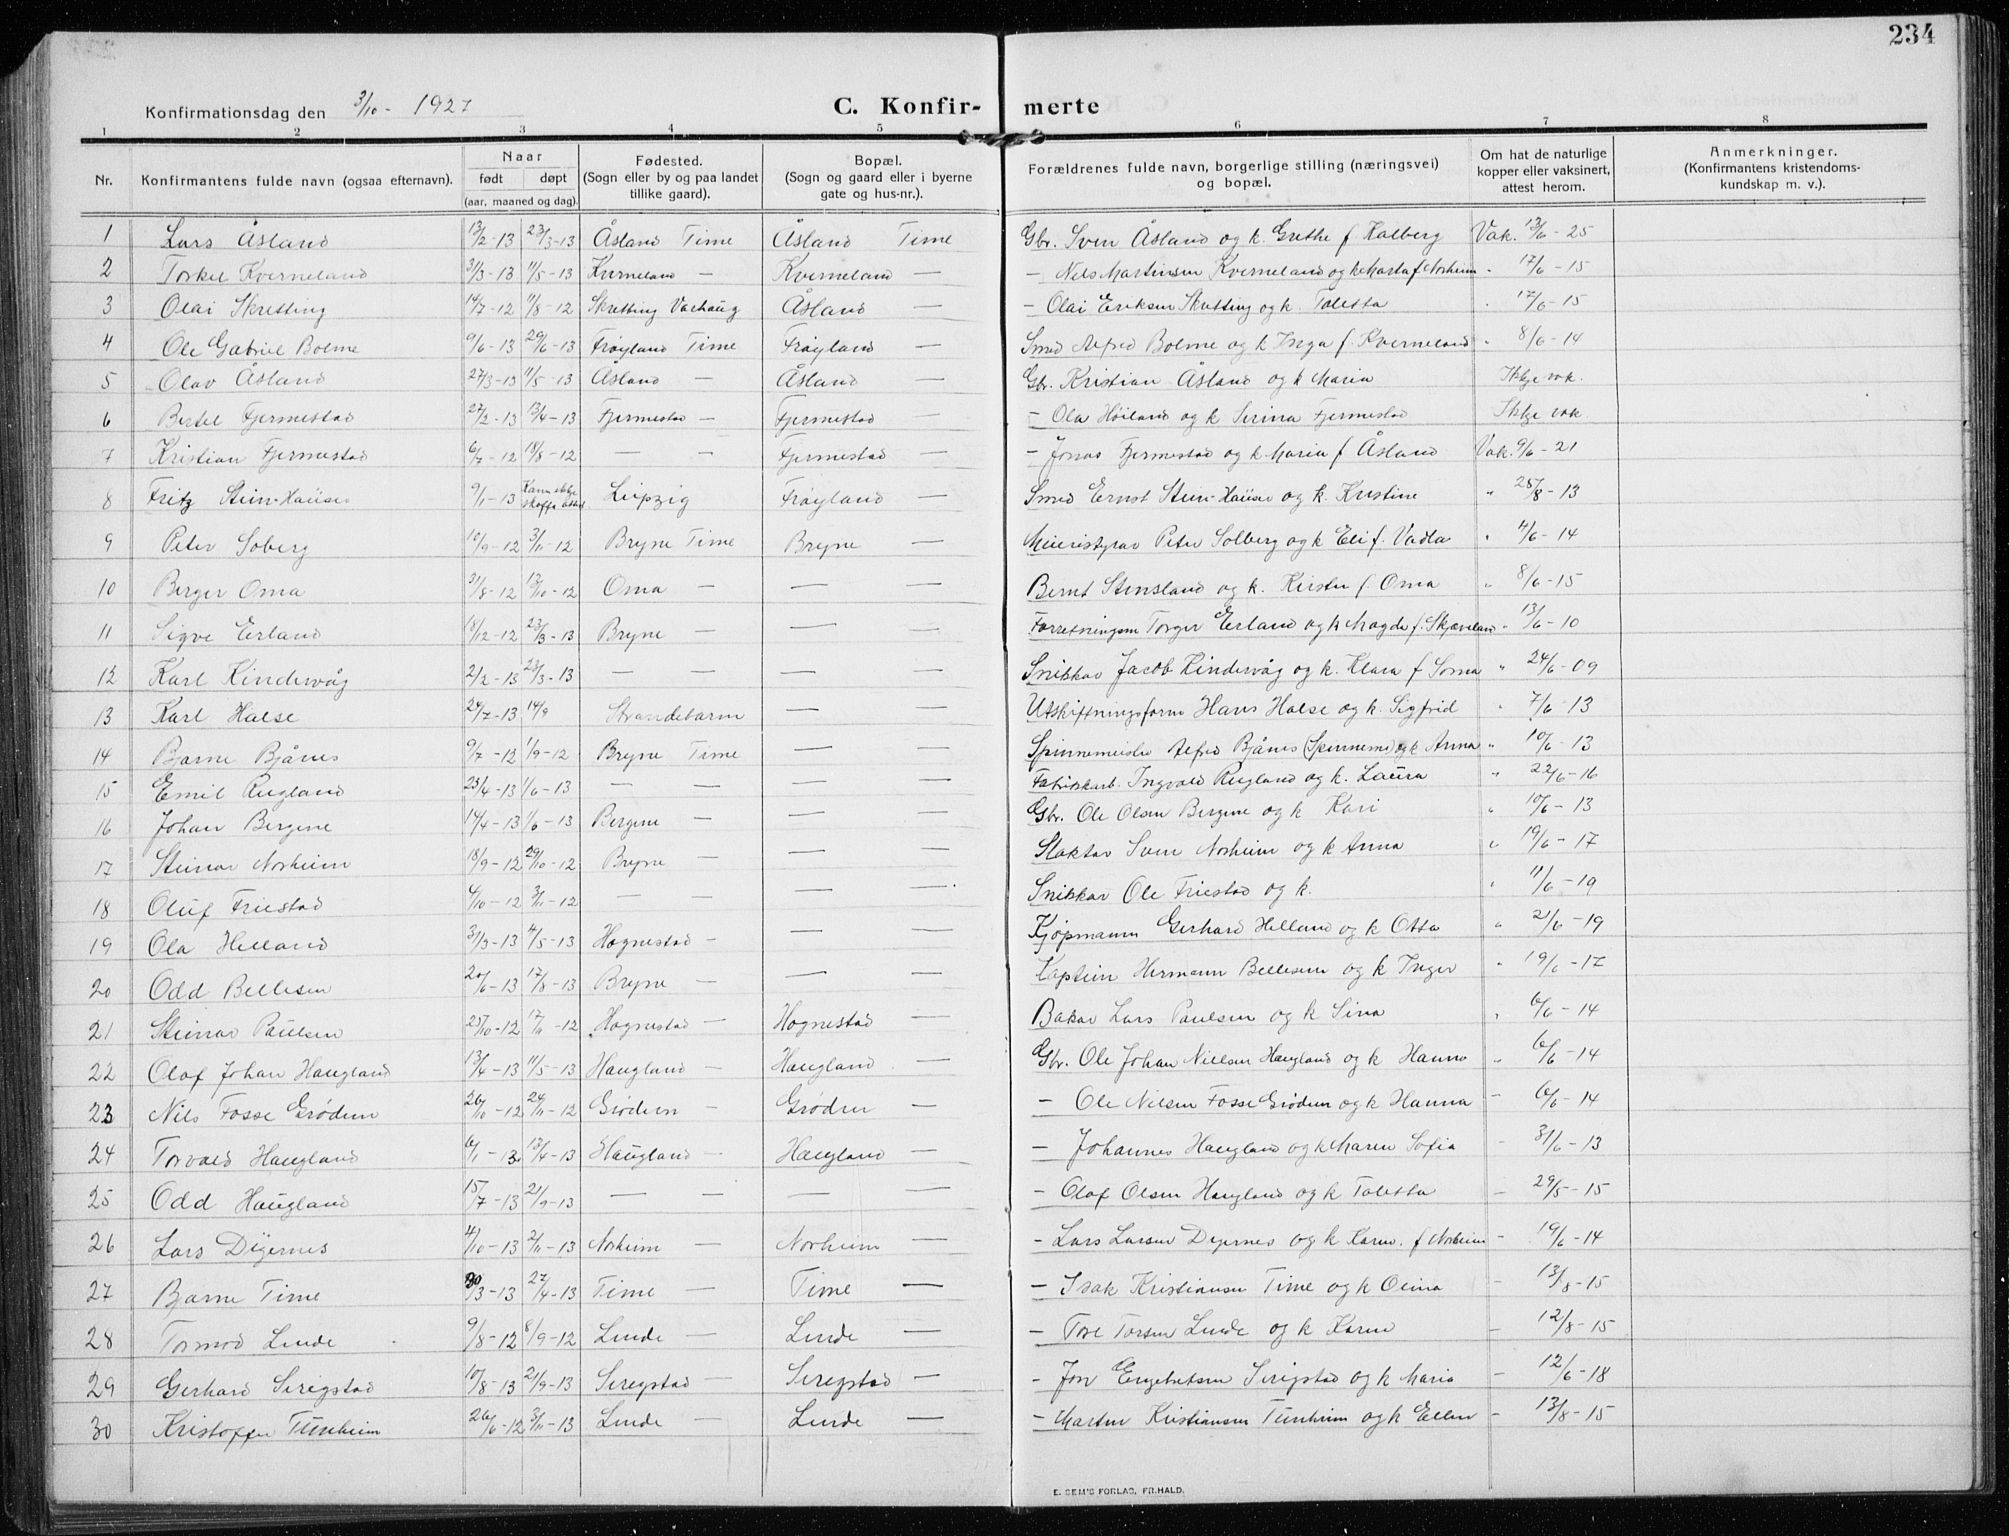 234
Konfirmationsdag den 3/10 - 1927
C. Konfir- merte
1 2 3 4 5 6 7 8
Nr. Konfirmantens fulde navn (ogsaa efternavn). Naar født døpt (aar, maaned og dag). Fødested. (Sogn eller by og paa landet tillike gaard). Bopæl. (Sogn og gaard eller i byerne gate og hus-nr.). Forældrenes fulde navn, borgerlige stilling (næringsvei) og bopæl. Om hat de naturlige kopper eller vaksinert, attest herom. Anmerkninger. (Konfirmantens kristendomskundskap m. v.).
1 Lars Åsland 13/2-13 23/3-13 Åsland Time Åsland Time Gbr. Sven Åsland og k. Grethe f Kalberg Vak. 13/6-25
2 Torkel Kverneland 31/3-13 11/5-13 Kverneland — Kverneland — – Nils Martinsen Kverneland og k Marta f Norheim " 17/6-15
3 Olai Skretting 14/7-12 11/8-12 Skretting Varhaug Åsland — – Olai Eriksen Skretting og k. Taletta " 17/6-15
4 Ole Gabriel Bolme 9/6-13 29/6-13 Frøyland Time Frøyland — Smed Alfred Bolme og k Inga f. Kverneland " 8/6-14
5 Olav Åsland 27/3-13 11/5-13 Åsland — Åsland — Gbr. Kristian Åsland og k Maria Ikkje vak.
6 Bertel Fjermestad 27/2-13 13/4-13 Fjermestad – Fjermestad — – Ola Høiland og k Serina Fjermestad Ikkje vak.
7 Kristian Fjermestad 6/7-12 18/8-12 — — Fjermestad — – Jonas Fjermestad og k Maria f Åsland Vak. 9/6-21
8 Fritz Stein-Hauser 9/1-13 Kann ikkje skaffe attest Leipzig Frøyland — Smed Ernst Stein-Hauser og k. Kristine " 28/8-13
9 Peter Soberg 10/9-12 3/11-12 Bryne Time Bryne — Meieristyrar Peter Solberg og k Eli f. Vadla " 4/6-14
10 Berger Oma 31/8-12 13/10-12 Oma — — — Bernt Stensland og k. Kirsten f. Oma " 8/6-15
11 Sigve Erland 18/12-12 23/3-13 Bryne — — — Forretningsm Torger Erland og k Magda f. Skjæveland " 13/6-10
12 Karl Kindervåg 2/2-13 23/3-13 — — — — Snikkar Jacob Kindervåg og k. Klara f Soma " 24/6-09
13 Karl Halse 24/7-13 14/9 Strandebarm — — Utskiftningsform Hans Halse og k. Sigfrid " 7/6-13
14 Bjarne Bjånes 9/7-12 1/9-12 Bryne Time — — Spinnemeister Alfred Bjånes (Spinnem) og k Anna " 10/6-13
15 Emil Rugland 23/4-13 1/6-13 — — — — Fabrikkarb. Ingvald Rugland og k. Laura " 22/6-16
16 Johan Bergene 14/4-13 1/6-13 Bergene — — — Gbr. Ole Olsen Bergene og k Kari " 10/6-13
17 Steinar Norheim 18/9-12 29/10-12 Bryne — — Slaktar Sven Norheim og k Anna " 19/6-17
18 Oluf Friestad 4/10-12 3/11-12 — — — — Snikkar Ole Friestad og k. " 11/6-19
19 Ola Helland 31/3-13 4/5-13 Hognestad – — — Kjøpmann Gerhard Helland og k Otta " 21/6-19
20 Odd Bellesen 20/6-13 17/8-13 Bryne — — — Kaptein Hermann Bellesen og k Inger " 19/6-17
21 Steinar Paulsen 25/10-12 17/11-12 Hognestad – Hognestad — Bakar Lars Paulsen og k Sina " 6/6-14
22 Olaf Johan Haugland 13/4-13 11/5-13 Haugland — Haugland — Gbr. Ole Johan Nielsen Haugland og k Hanna " 6/6-14
23 Nils Fosse Grødem 26/10-12 24/11-12 Grødem — Grødem — – Ole Nilsen Fosse Grødem og k Hanna – 6/6-14
24 Torvald Haugland 6/1-13 13/4-13 Haugland — Haugland — – Johannes Haugland og k Maren Sofia – 31/6-13
25 Odd Haugland 15/7-13 21/9-13 — — — — – Olaf Olsen Haugland og k Taletta – 29/5-15
26 Lars Dyernes 4/10-13 2/11-13 Norheim — Norheim — – Lars Larsen Dyernes og k Karen f Norheim – 19/6-14
27 Bjarne Time 30/3-13 27/4-13 Time — Time — – Isak Kristiansen Time og k Olina – 13/8-15
28 Tormod Linde 9/8-12 8/9-12 Linde — Linde — – Tore Torsen Linde og k Karen – 12/8-15
29 Gerhard Serigstad 10/8-13 21/9-13 Serigstad — Serigstad — – Jon Engebretsen Serigstad og k Maria – 12/6-18
30 Kristoffer Tunheim 26/6-12 3/11-13 Linde — Linde — – Martin Kristiansen Tunheim og k Ellen – 13/8-15
E. SEM'S FORLAG, FR.HALD.